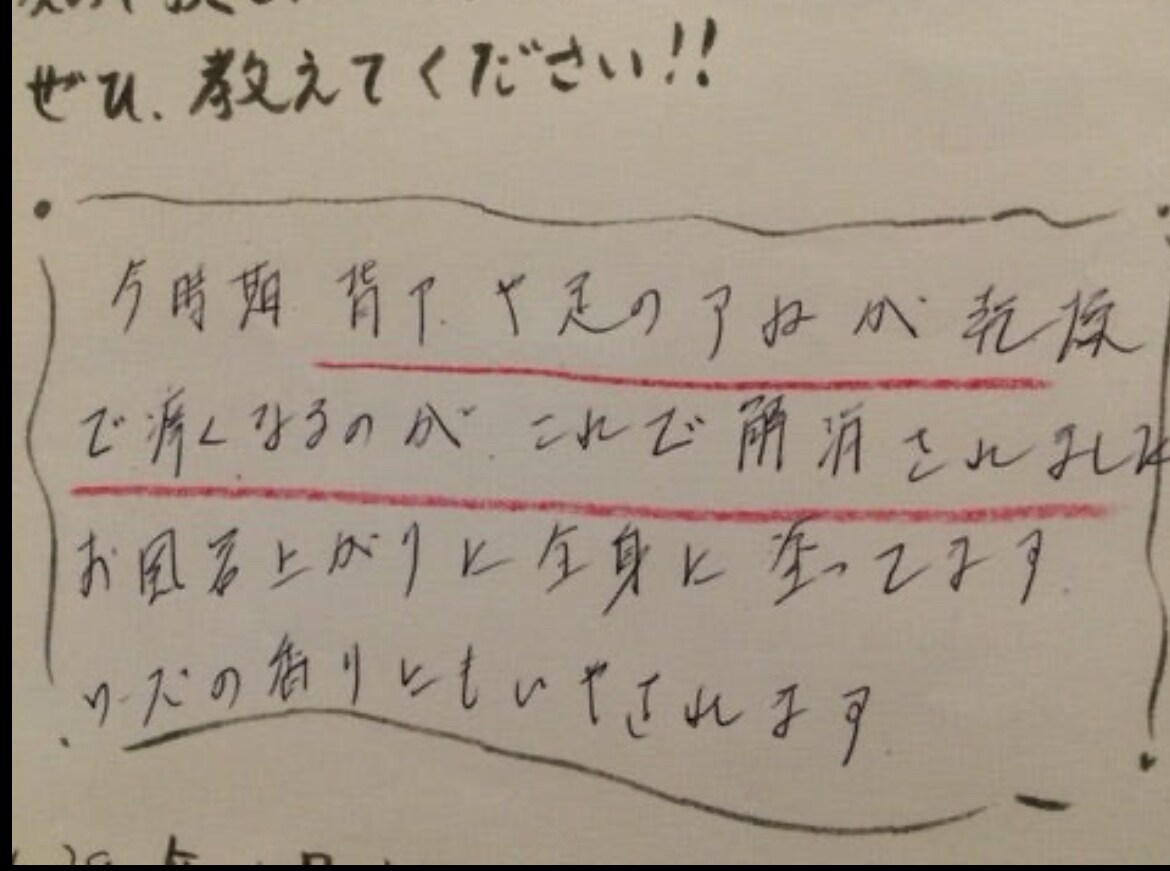 ぜひ、教えてください!!
今時期 背中や足のすねが乾燥
で痛くなるのが これで解消されました
お風呂上がりに全身に塗ってます
ローズの香りにもいやされます